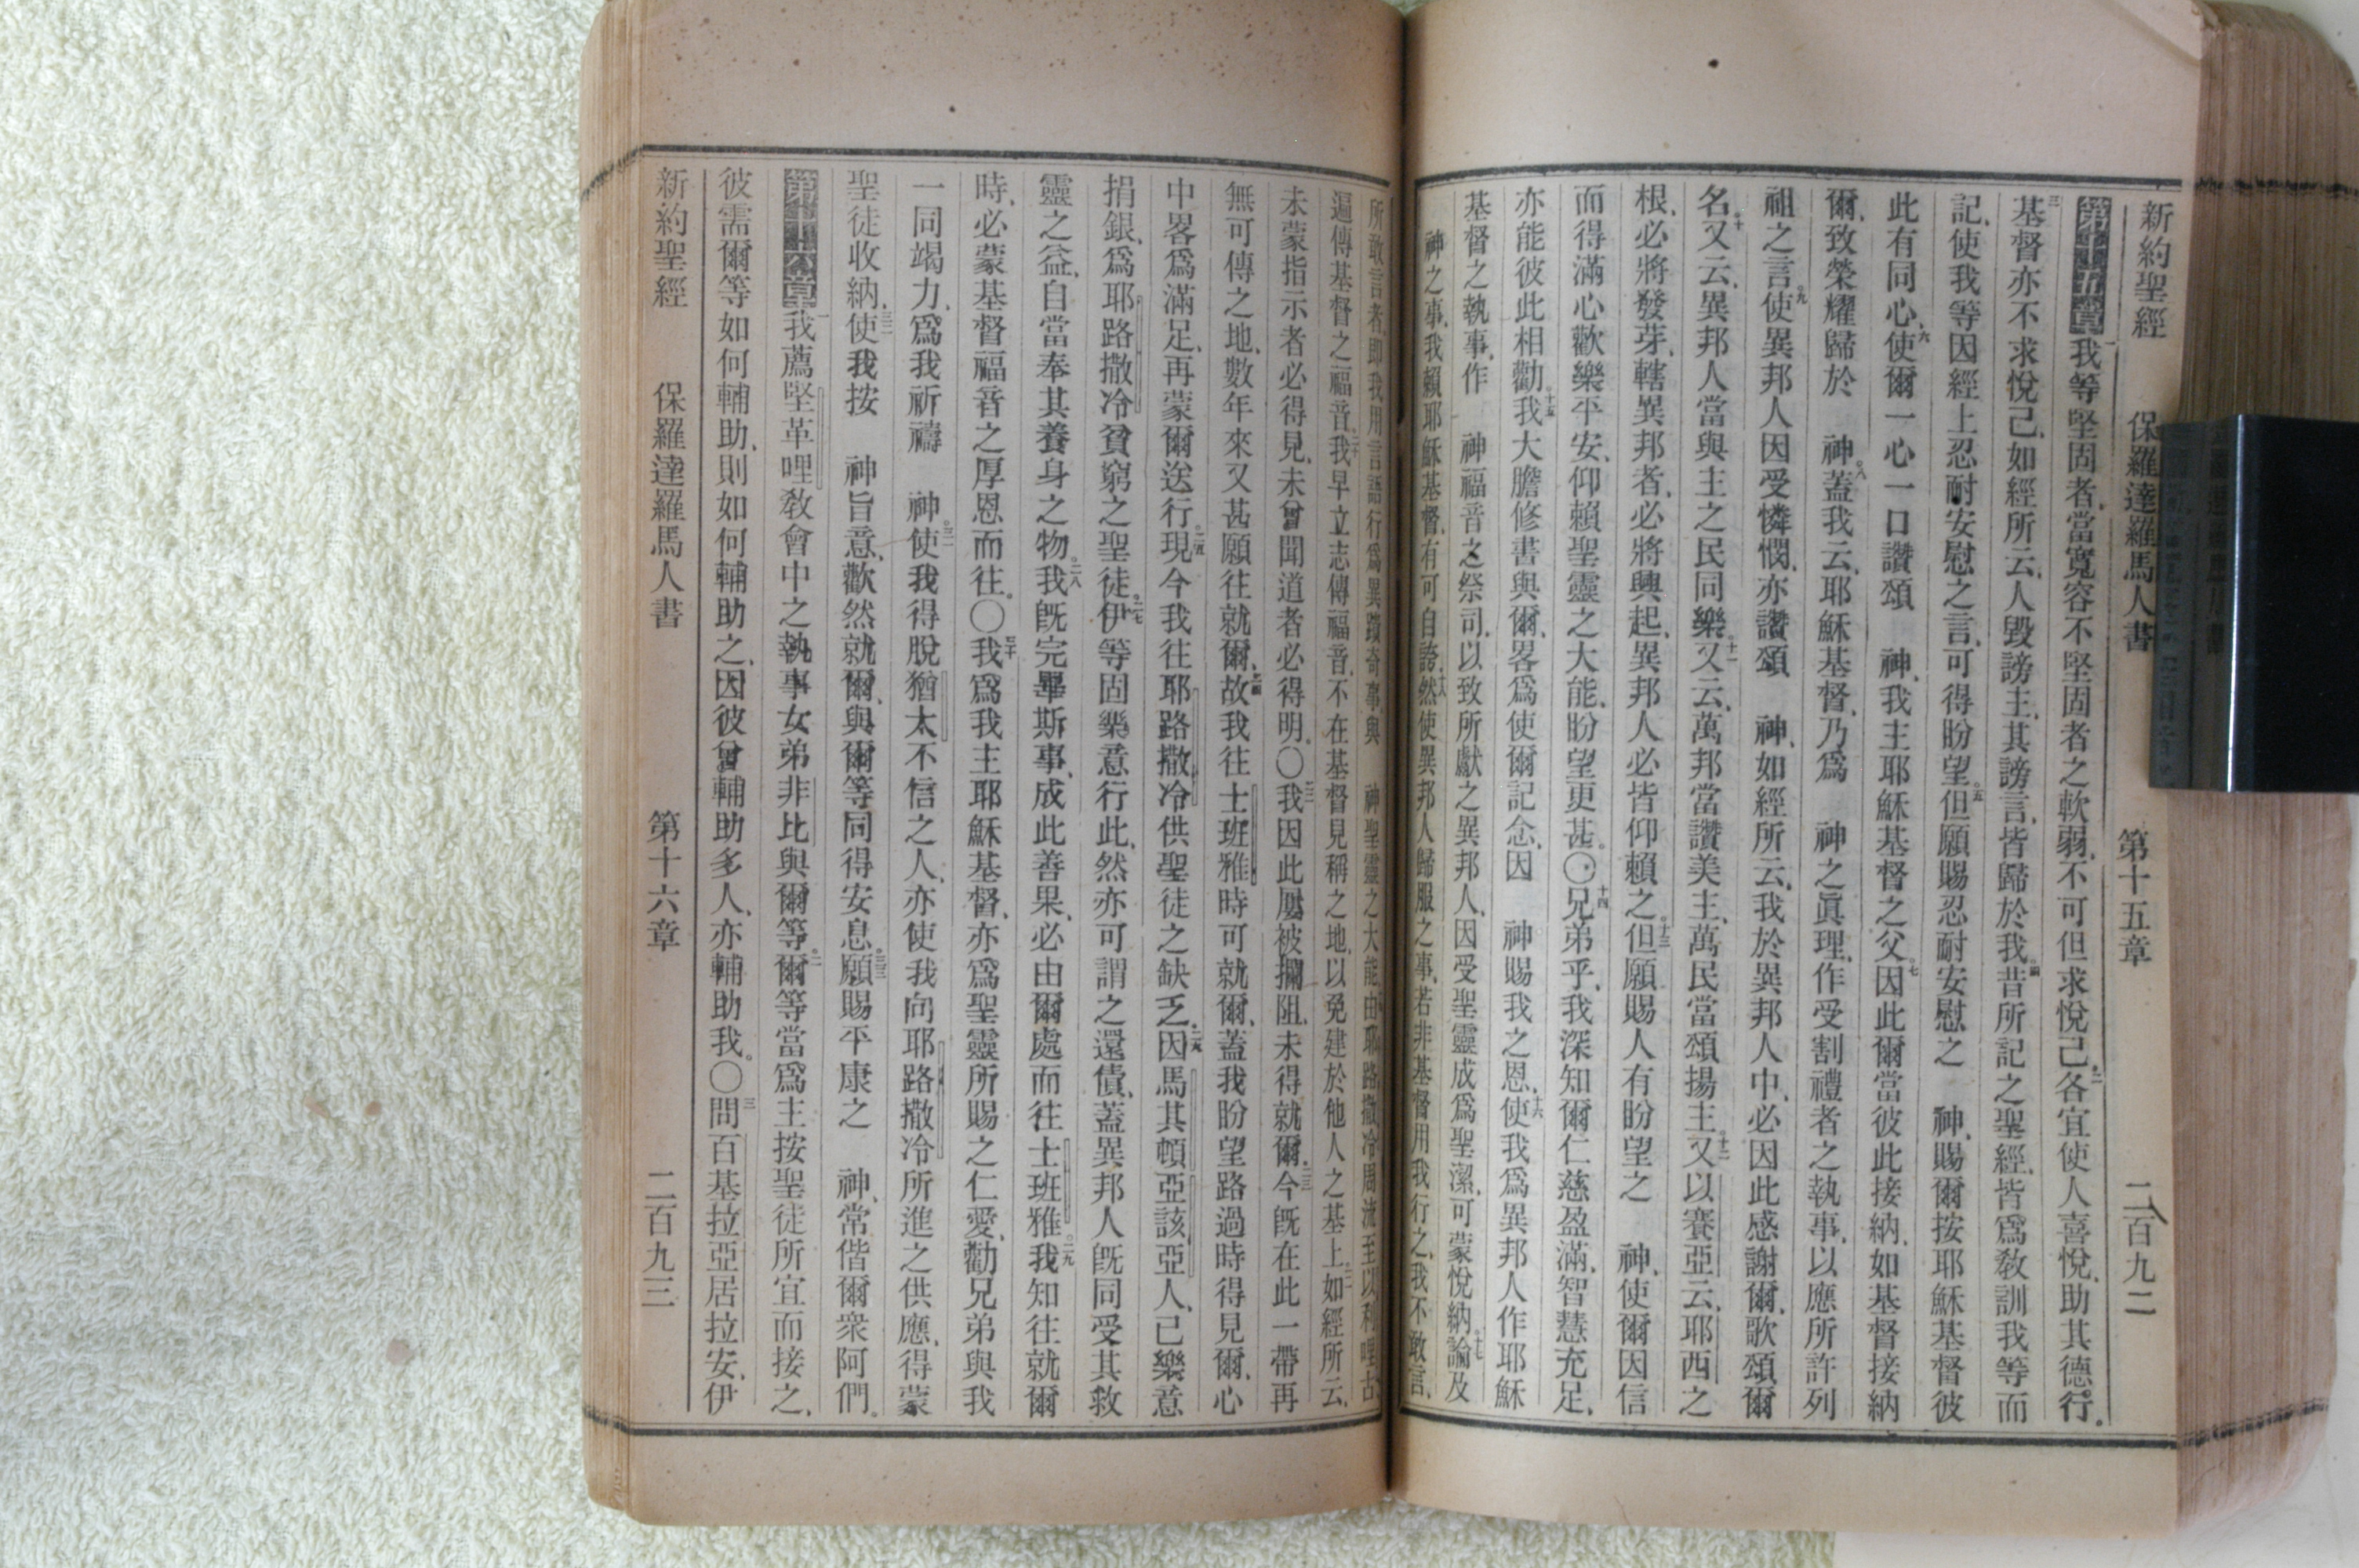 新約聖經 保羅達羅馬人書 第十五章 二百九二
第十五章 一我等堅固者、當寬容不堅固者之軟弱、不可但求悅己、二各宜使人喜悅、助其德行。
三基督亦不求悅己、如經所云、人毀謗主、其謗言、皆歸於我。四昔所記之聖經、皆爲敎訓我等而
記、使我等因經上忍耐安慰之言、可得盼望。五但願賜忍耐安慰之 神、賜爾按耶穌基督彼
此有同心、六使爾一心一口讚頌 神、我主耶穌基督之父。七因此爾當彼此接納、如基督接納
爾、致榮耀歸於 神。八蓋我云、耶穌基督、乃爲 神之眞理、作受割禮者之執事、以應所許列
祖之言。九使異邦人因受憐憫、亦讚頌 神、如經所云、我於異邦人中、必因此感謝爾、歌頌爾
名。十又云、異邦人當與主之民同樂。十一又云、萬邦當讚美主、萬民當頌揚主。十二又以賽亞云、耶西之
根、必將發芽、轄異邦者、必將興起、異邦人必皆仰賴之。十三但願賜人有盼望之 神、使爾因信
而得滿心歡樂平安、仰賴聖靈之大能、盼望更甚。〇十四兄弟乎、我深知爾仁慈盈滿、智慧充足、
亦能彼此相勸。十五我大膽修書與爾、畧爲使爾記念、因 神賜我之恩、十六使我爲異邦人作耶穌
基督之執事、作 神福音之祭司、以致所獻之異邦人、因受聖靈成爲聖潔、可蒙悅納。十七論及
神之事、我賴耶穌基督、有可自誇。十八然使異邦人歸服之事、若非基督用我行之、我不敢言、
所敢言者、即我用言語行爲異蹟奇事、與 神聖靈之大能、由耶路撒冷周流、至以利哩古、
遍傳基督之福音。二十我早立志傳福音、不在基督見稱之地、以免建於他人之基上。二一如經所云、
未蒙指示者必得見、未曾聞道者必得明。〇二二我因此屢被攔阻、未得就爾。二三今旣在此一帶再
無可傳之地、數年來又甚願往就爾、二四故我往士班雅時可就爾、蓋我盼望路過時得見爾、心
中畧爲滿足、再蒙爾送行。二五現今我往耶路撒冷、供聖徒之缺乏。二六因馬其頓亞該亞人、已樂意
捐銀、爲耶路撒冷貧窮之聖徒。二七伊等固樂意行此、然亦可謂之還債、蓋異邦人旣同受其救
靈之益、自當奉其養身之物。二八我旣完畢斯事、成此善果、必由爾處而往士班雅。二九我知往就爾
時、必蒙基督福音之厚恩而往。〇三十我爲我主耶穌基督、亦爲聖靈所賜之仁愛、勸兄弟與我
一同竭力、爲我祈禱 神。三一使我得脫猶太不信之人、亦使我向耶路撒冷所進之供應、得蒙
聖徒收納、三二使我按 神旨意、歡然就爾、與爾等同得安息。三三願賜平康之 神、常偕爾衆阿們。
第十六章 一我薦堅革哩敎會中之執事女弟非比與爾等。二爾等當爲主按聖徒所宜而接之、
彼需爾等如何輔助、則如何輔助之、因彼曾輔助多人、亦輔助我。〇三問百基拉亞居拉安、伊
新約聖經 保羅達羅馬人書 第十六章 二百九三